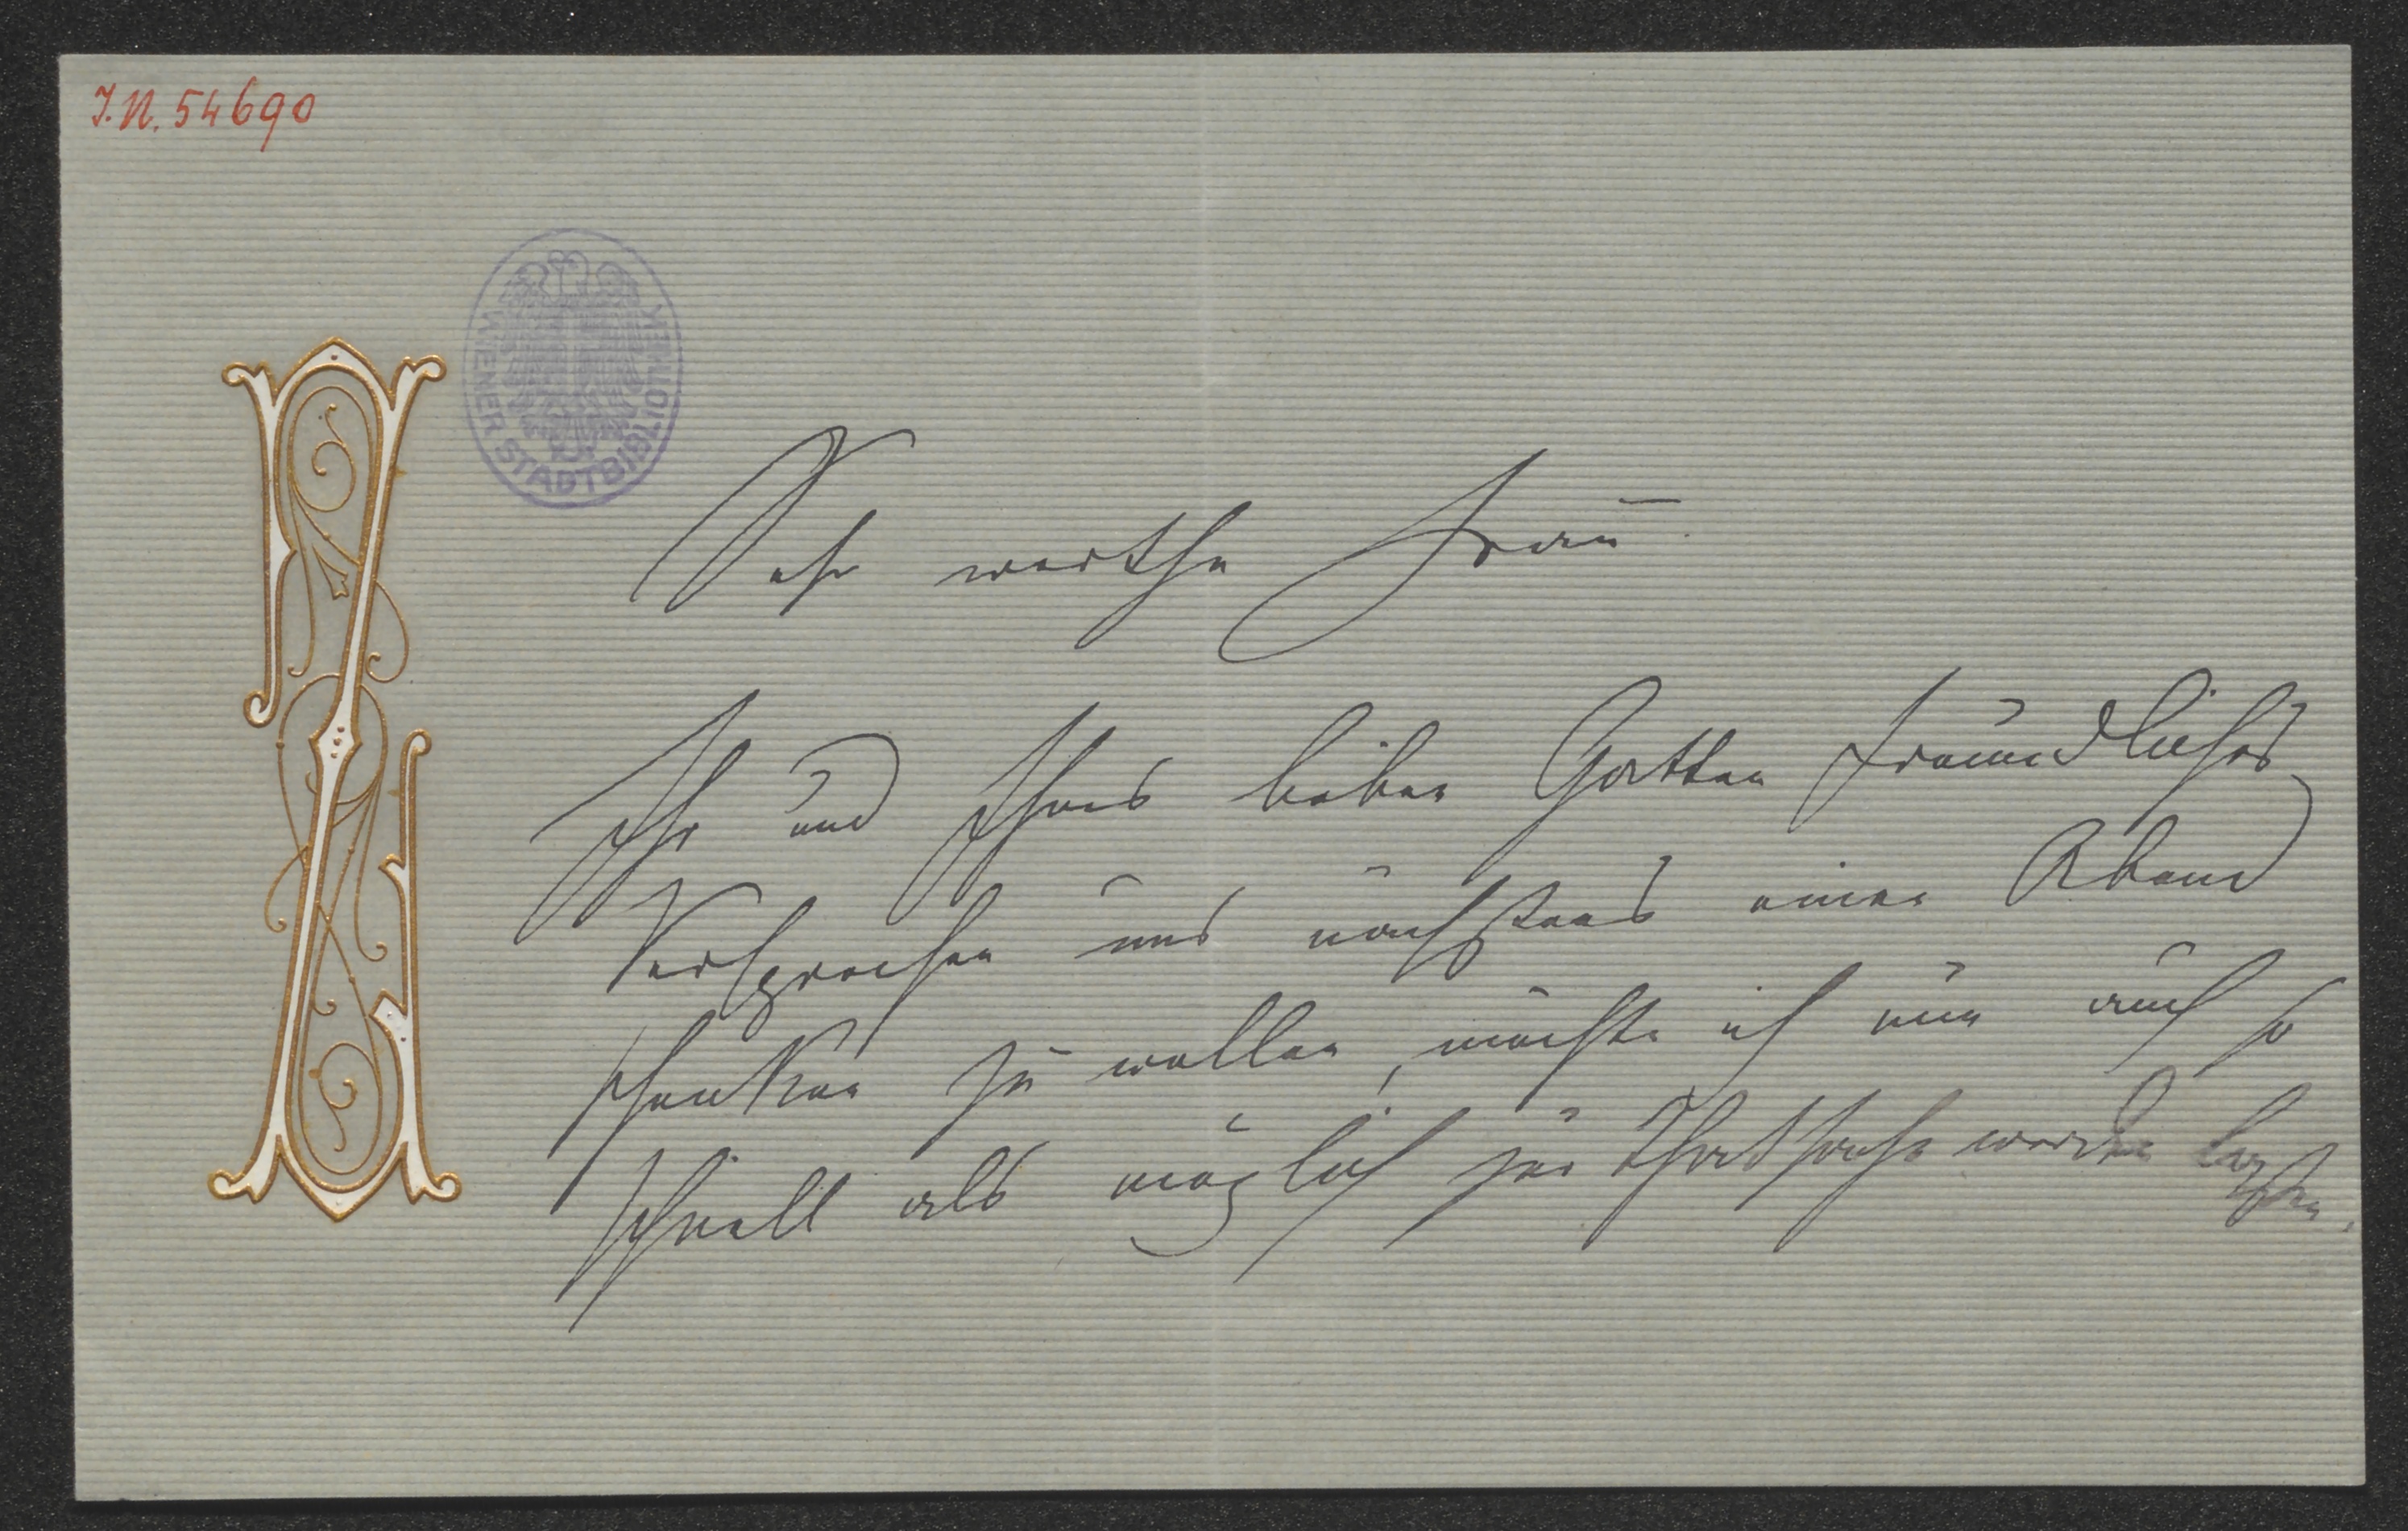 J.N. 54690
WIENER STADTBIBLIOTHEK
Sehr werthe Frau
Ihr und Ihres lieben Gatten freundliches
Versprechen uns nächstens einen Abend
schenken zu wollen, möchte ich nun auch so
schnell als möglich zur Thatsache werden lassen.